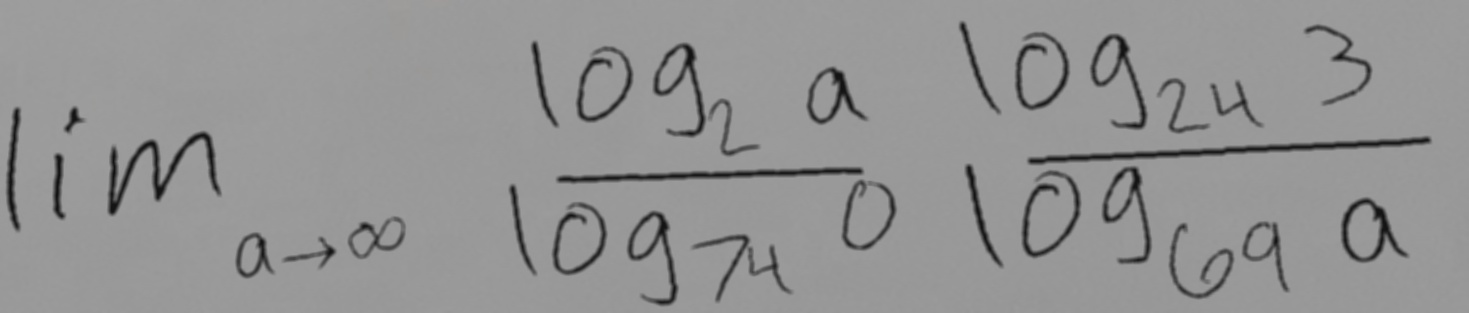 lim a→∞ log₂ a / log₇₄ 0 log₂₄ 3 / log₆₉ a